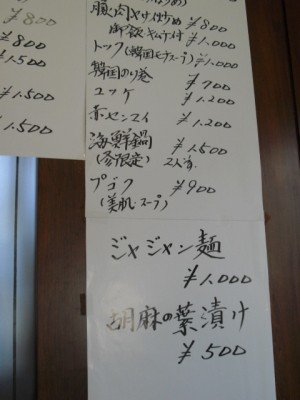 ¥800
¥800
¥1.500
¥1.500
豚肉ヤサイ炒め ¥800
御飯 キムチ付 ¥1,000
トック(韓国モチスープ) ¥1.000
韓国のり巻 ¥700
ユッケ ¥1.200
赤センマイ ¥1.200
海鮮鍋 ¥1,500
(冬限定) 2人分
プゴク ¥900
(美肌スープ)
ジャジャン麺
¥1.000
胡麻の葉漬け
¥500